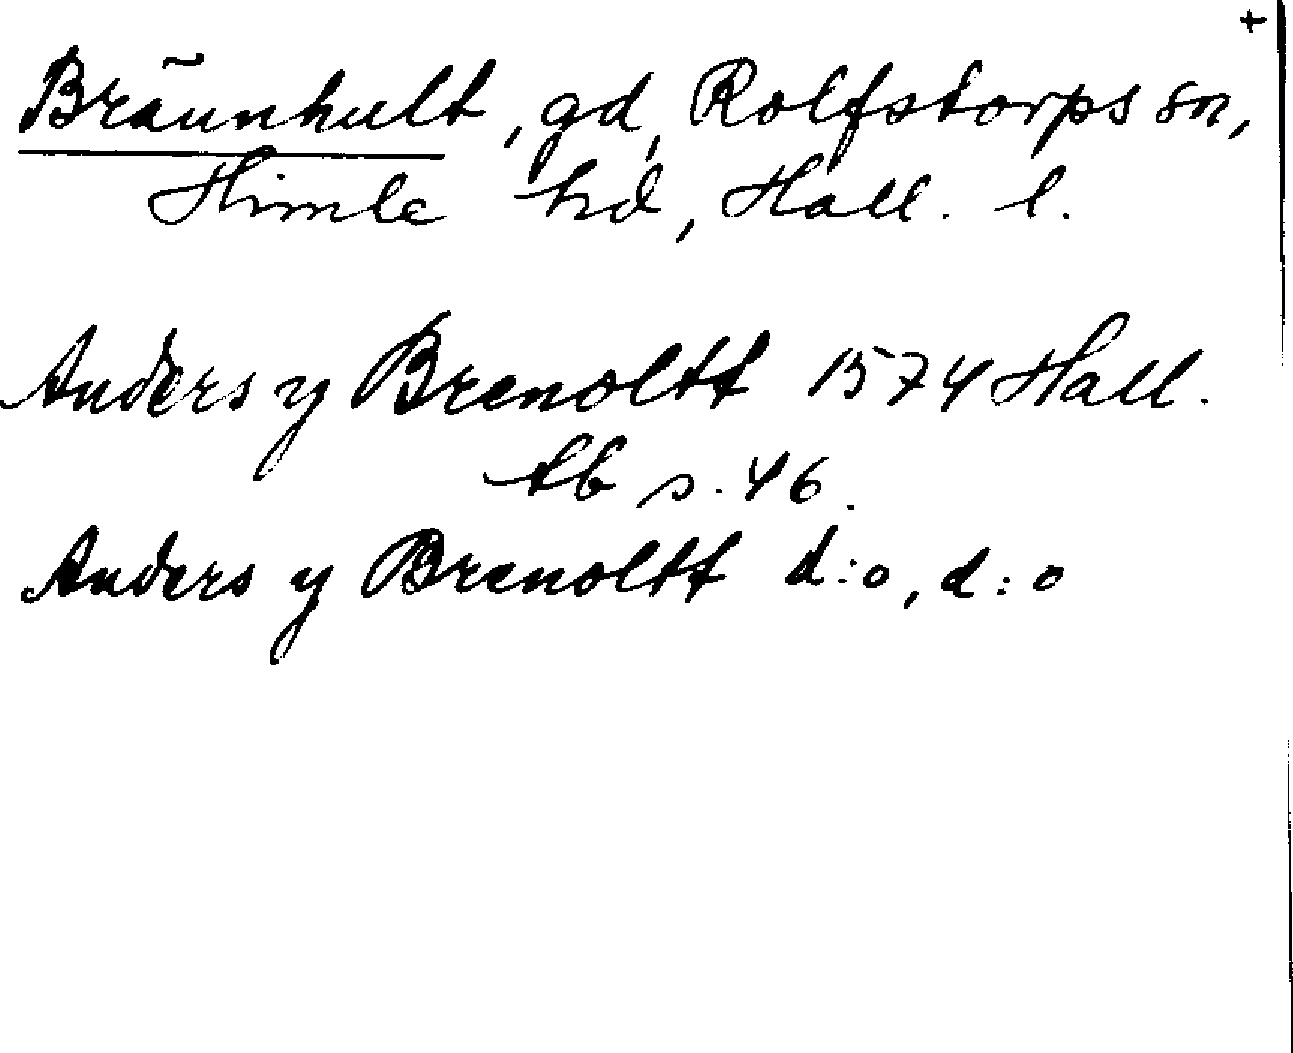 +
Bräunhult, gd, Rolfstorps sn,
Himle hd, Hall. l.
Anders y Brenoltt 1574 Hall.
tb s. 46.
Anders y Brenoltt d:o, d:o